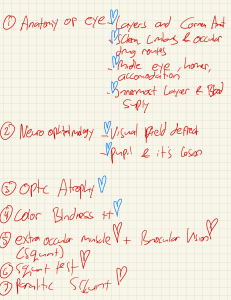 ① Anatomy of eye Layers and Cornea And
Sclera, Limbus & occular
drug routes
Middle eye, horner,
accomodation
Innermost Layer & Blood
Supply
② Neuro ophthalmology - Visual field defect
- Pupil & it's lesion
③ Optic Atrophy
④ Color Blindness
⑤ extra occular muscle + Binocular Vision
(Squint)
⑥ Squint test
⑦ Paralitic Squint